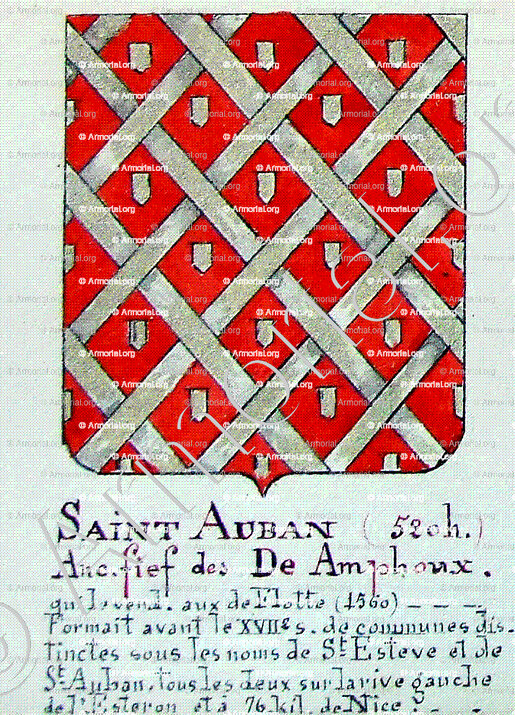 SAINT AUBAN (52oh.)
Anc. fief des De Amphoux.
qui le vend. aux de Flotte (1560) - - -
Formait avant le XVIIe s. de communes dis-
tinctes sous les noms de St Esteve et de
St Auban. tous les deux sur la rive gauche
de l'Esteron et à 76 kil. de Nice. - -
© Armorial.org